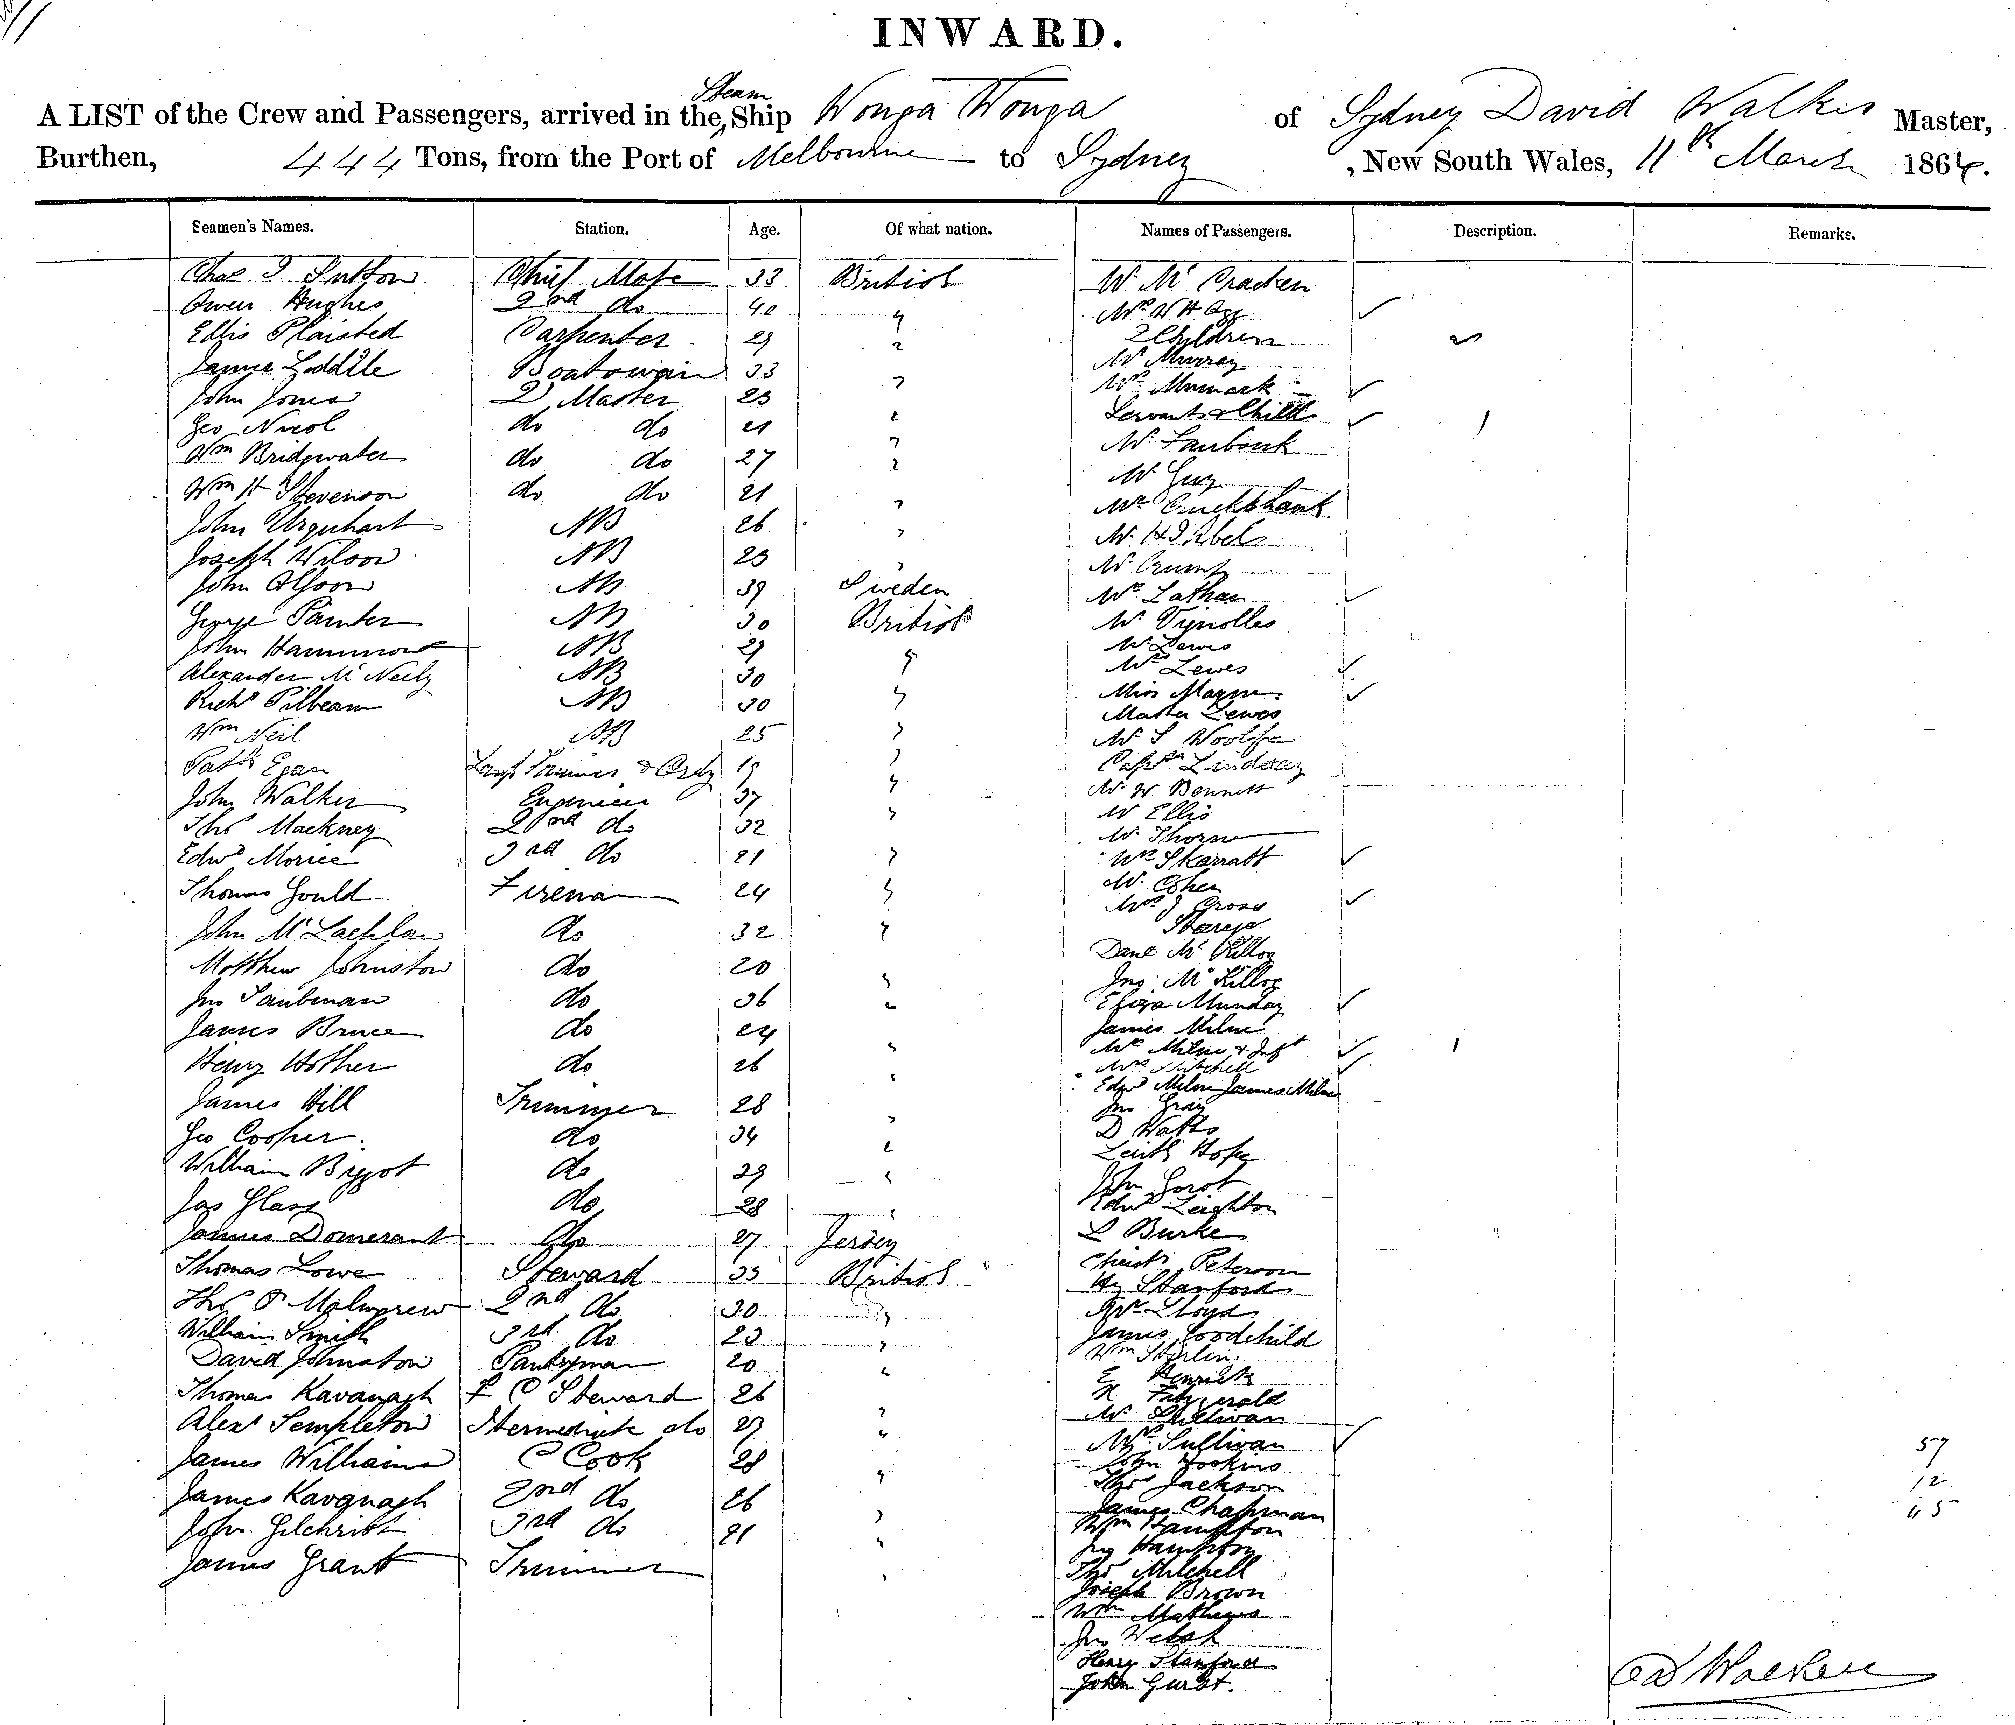 INWARD.
A LIST of the Crew and Passengers, arrived in the Steam Ship Wonga Wonga of Sydney David Walker Master,
Burthen, 444 Tons, from the Port of Melbourne to Sydney, New South Wales, 11th March 1864.
Seamen's Names. Station. Age. Of what nation. Names of Passengers. Description. Remarks.
Chas Sutton Chief Mate 33 British W. McCracken
Owen Hughes 2nd do 40 " Mrs W H
Ellis Plaisted Carpenter 29 " 2 Children
James Liddle Boatswain 33 " Mr Murray
John Jones Q Master 23 " Mrs
Geo Nicol do do 21 " Servant & Child
Wm Bridgwater do do 27 " Mr
Wm H Stevenson do do 21 " Mr Guy
John Urquhart AB 26 " Mr Cruikshank
Joseph Wilson AB 23 " Mr H Abel
John Olsson AB 39 Sweden Mr Crump
George Painter AB 30 British Mrs Latham
John Hammond AB 29 " Mr Vignolles
Alexander McNeily AB 30 " Mr Lewes
Richd Pilbeam AB 30 " Mrs Lewes
Wm Neil AB 25 " Miss
Patk Egan Lamp Trimmer & Ordy 19 " Master Lewes
John Walker Engineer 37 " Mr S
Thos Mackney 2nd do 32 " Captn Lindsay
Edwd Morice 3rd do 21 " Mr W Bennett
Thomas Gould Fireman 24 " Mr Ellis
John McLachlan do 32 " Mr Thorne
Matthew Johnston do 20 " Mrs Skarratt
Jno Taubman do 36 " Mr Cohen
James Bruce do 24 " Mrs J Cross
Henry Hother do 26 " Steerage
James Hill Trimmer 28 " Danl McKillop
Geo Cooper do 34 " Jno McKillop
William Biggot do 29 " Eliza Munday
Jas Glass do 28 " James Milne
James Domerant do 27 Jersey Mrs Milne & Inft
Thomas Lowe Steward 33 British Mrs Mitchell
Thos P 2nd do 30 " Edwd Milne James Milne
William Smith 3rd do 23 " Jno Gray
David Johnston Pantryman 20 " D Watts
Thomas Kavanagh F C Steward 26 " Leith Hope
Alexr Templeton Intermediate do 29 " John
James Williams C Cook 28 " Edwd Leighton
James Kavanagh 2nd do 26 " L Burke
John Gilchrist 3rd do 21 " Christn Peterson
James Grant Trimmer " Hy Stanford
Lloyd
James Goodchild
Wm Sterlin
E Kenrick
Fitzgerald
Mr Sullivan
Mrs Sullivan
John Hoskins
Thos Jackson
James Chapman
Wm Hampton
Jno Hampton
Thos Mitchell
Joseph Brown
Wm Mathews
Jno Welsh
Henry Stanford
John Gurst.
57
12
45
D Walker